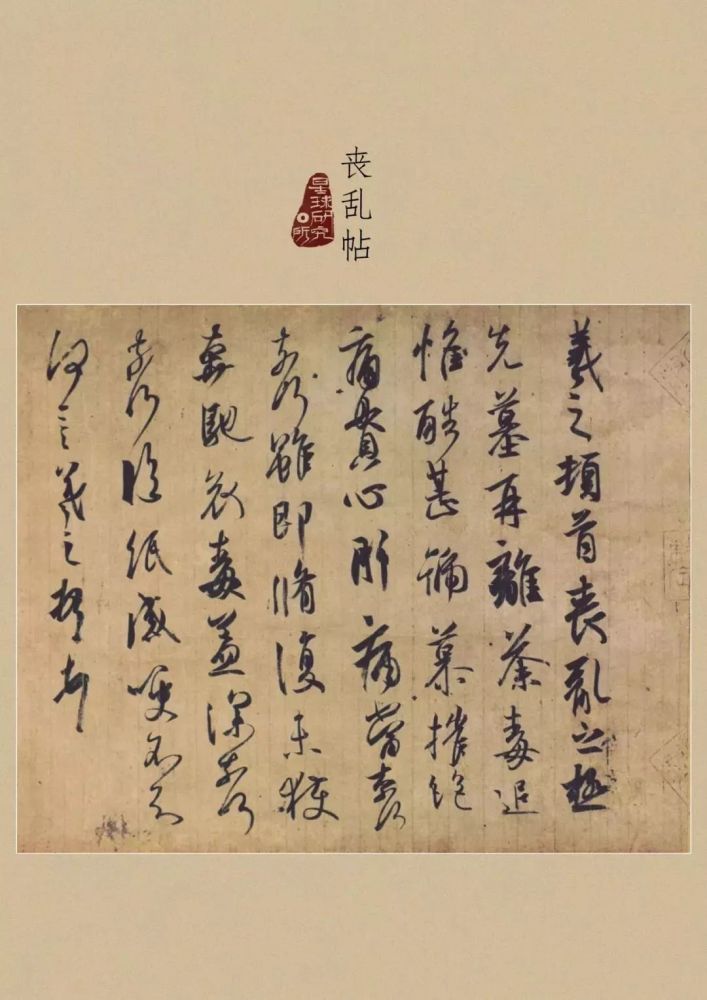 丧乱帖
星球研究所
羲之頓首喪亂之極
先墓再離荼毒追
惟酷甚號慕摧絕
痛貫心肝痛當奈何
奈何雖即脩復未獲
奔馳哀毒益深奈何
奈何臨紙感哽不知
何言羲之頓首